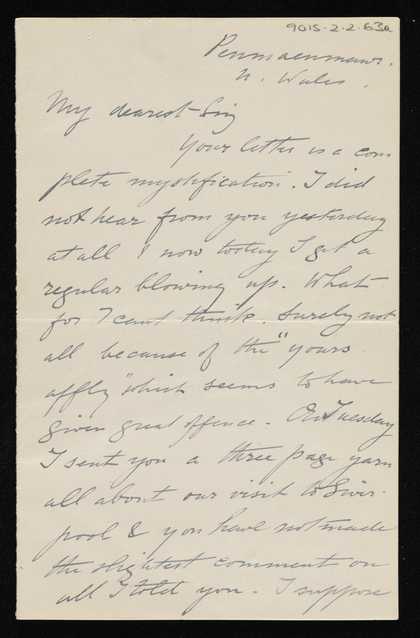 9015-2-2-63a
Penmaenmawr.
N. Wales.
My dearest
Your letter is a com
plete mystification. I did
not hear from you yesterday
at all & now today I get a
regular blowing up. What
for I cant think. Surely not
all because of the "yours
affly" which seems to have
given great offence. On Tuesday
I sent you a three page yarn
all about our visit to Liver-
pool & you have not made
the slightest comment on
all I told you. I suppose